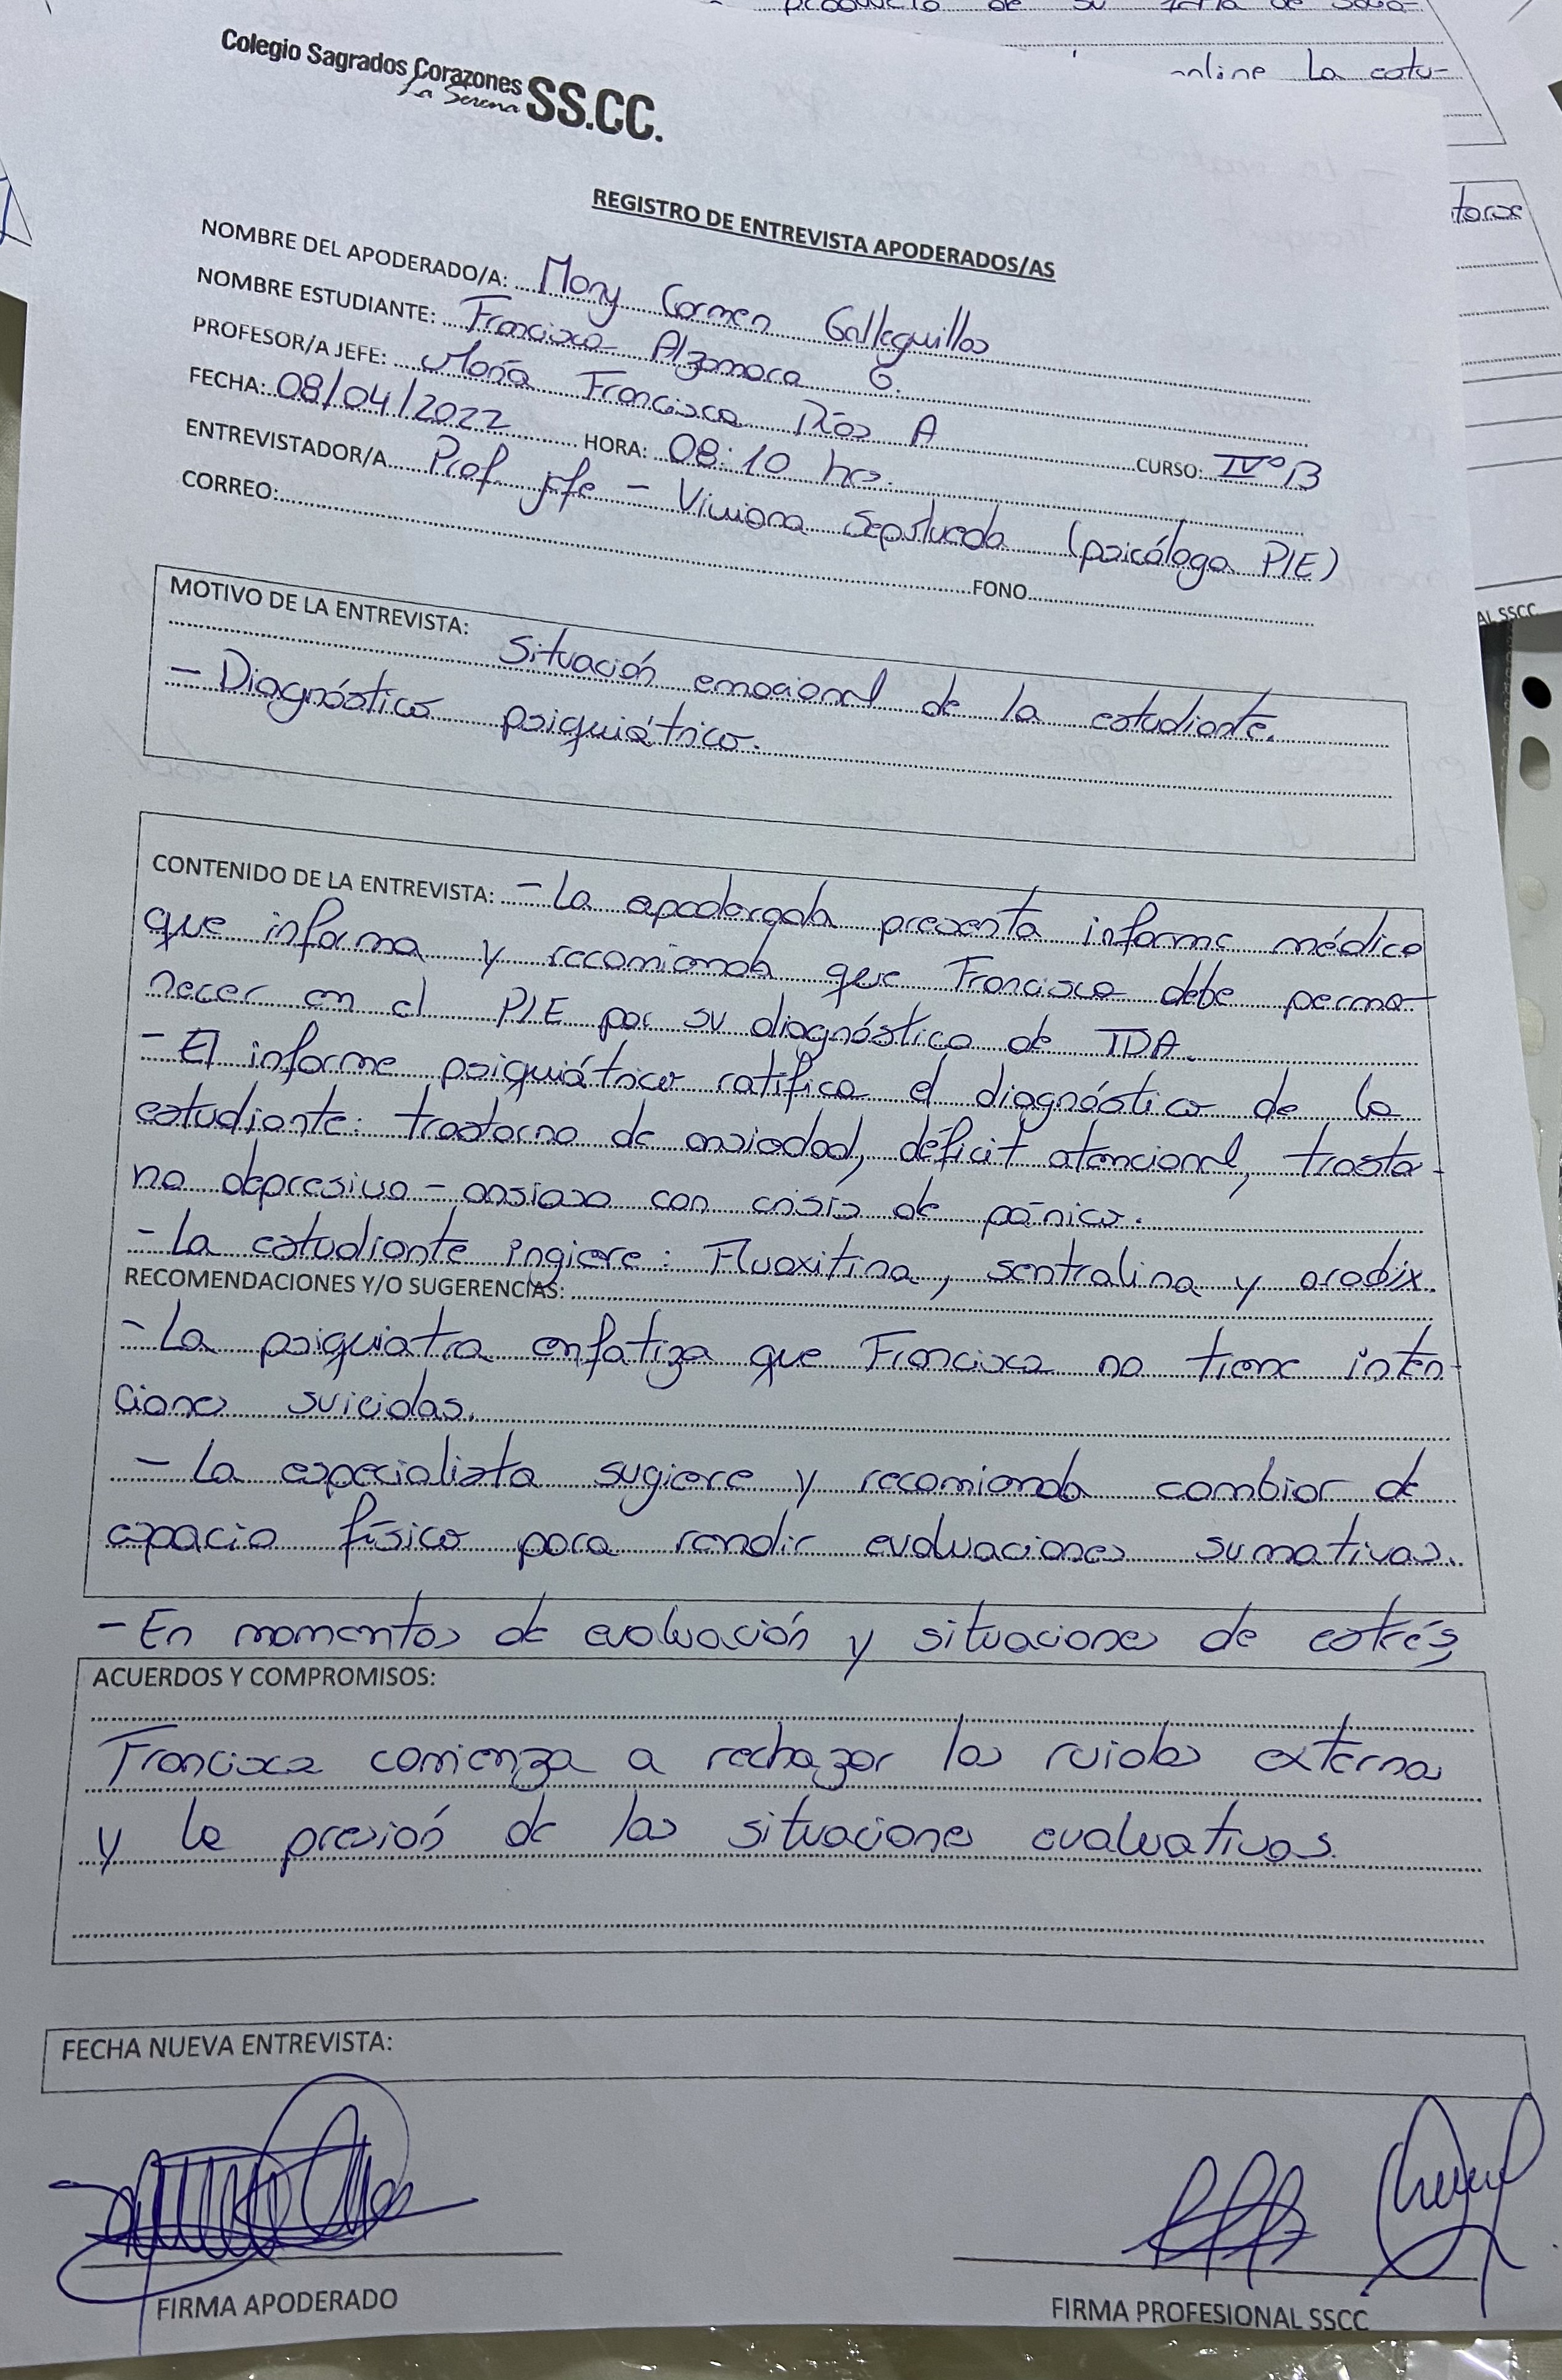 producto de su
online La estu-
Colegio Sagrados Corazones SS.CC.
La Serena
REGISTRO DE ENTREVISTA APODERADOS/AS
NOMBRE DEL APODERADO/A: Mary Carmen Galleguillos
NOMBRE ESTUDIANTE: Francisca Alzamora G.
PROFESOR/A JEFE: María Francisca Ríos A CURSO: IVº B
FECHA: 08/04/2022 HORA: 08:10 hrs.
ENTREVISTADOR/A Prof. jefe - Viviana Sepúlveda (psicóloga PIE)
CORREO: FONO
MOTIVO DE LA ENTREVISTA: Situación emocional de la estudiante.
- Diagnóstico psiquiátrico.
CONTENIDO DE LA ENTREVISTA: - La apoderada presenta informe médico
que informa y recomienda que Francisca debe perma-
necer en el PIE por su diagnóstico de TDA.
- El informe psiquiátrico ratifica el diagnóstico de la
estudiante: trastorno de ansiedad, déficit atencional, trastor-
no depresivo - ansioso con crisis de pánico.
- La estudiante ingiere: Fluoxitina, sentralina y aradix.
RECOMENDACIONES Y/O SUGERENCIAS:
- La psiquiatra enfatiza que Francisca no tiene inten-
ciones suicidas.
- La especialista sugiere y recomienda cambiar de
espacio físico para rendir evaluaciones sumativas.
- En momentos de evaluación y situaciones de estrés,
ACUERDOS Y COMPROMISOS:
Francisca comienza a rechazar los ruidos externos
y la presión de las situaciones evaluativas.
FECHA NUEVA ENTREVISTA:
FIRMA APODERADO
FIRMA PROFESIONAL SSCC